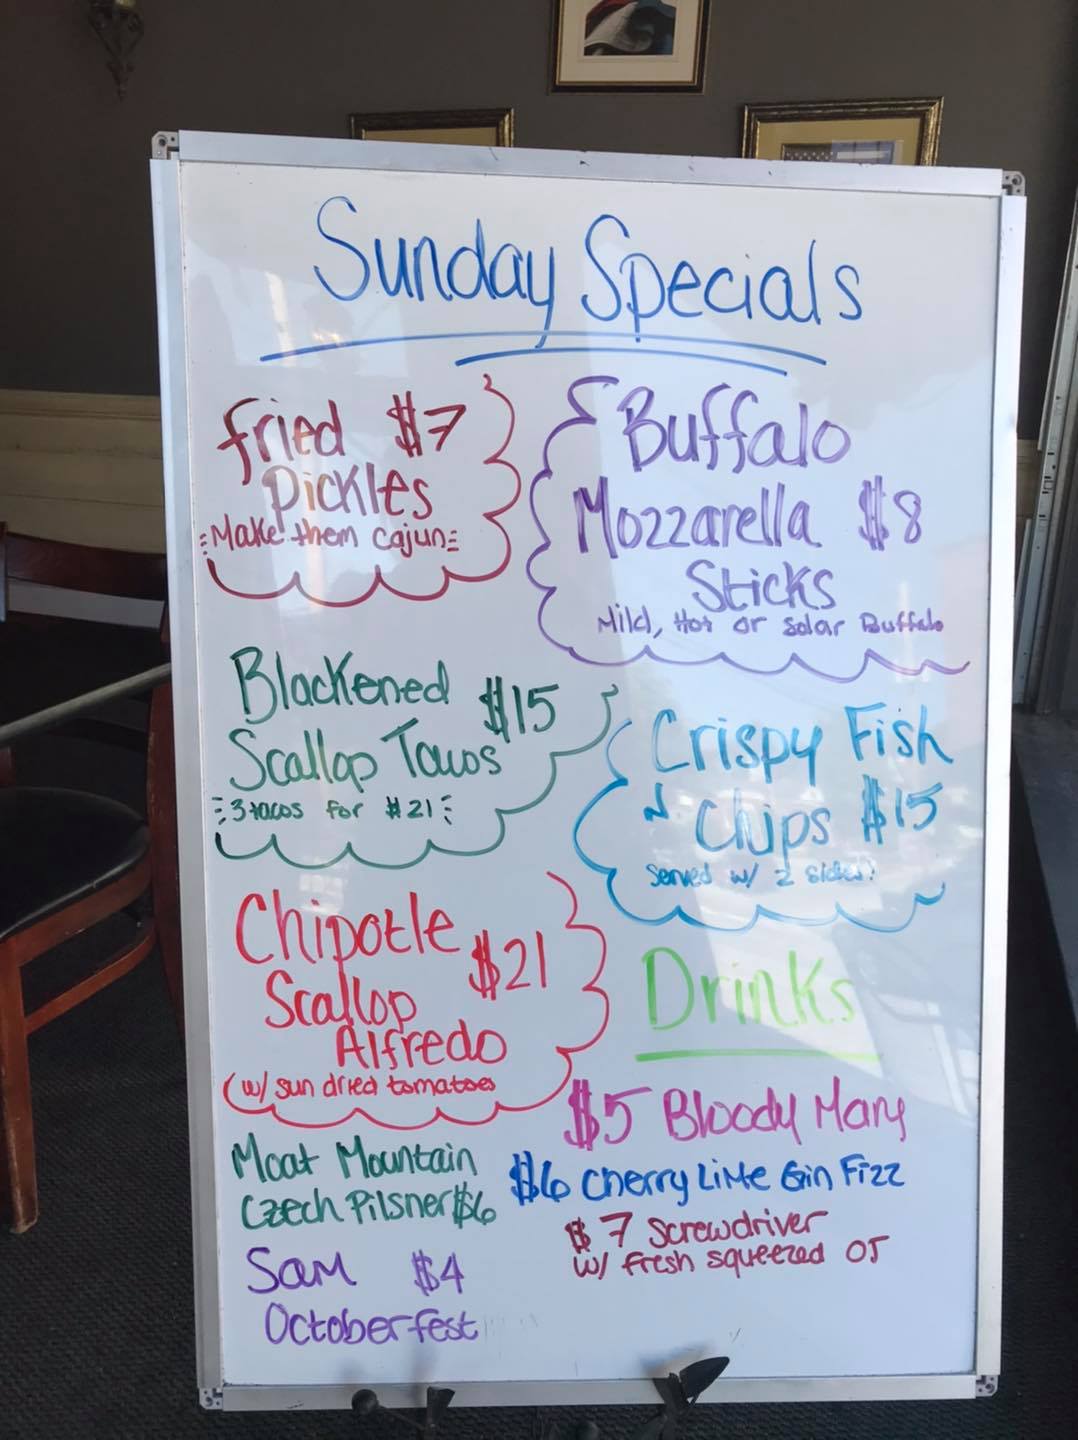 Sunday Specials
fried $7
Pickles
Make them cajun
Buffalo
Mozzarella $8
Sticks
Mild, Hot or Solar Buffalo
Blackened $15
Scallop Tacos
3 tacos for $21
Crispy Fish
Chips $15
served w/ 2 sides!
Chipotle $21
Scallop
Alfredo
(w/ sun dried tomatoes
Drinks
$5 Bloody Mary
$6 Cherry Lime Gin Fizz
$7 Screwdriver
w/ fresh squeezed OJ
Moat Mountain
Czech Pilsner $6
Sam $4
Octoberfest